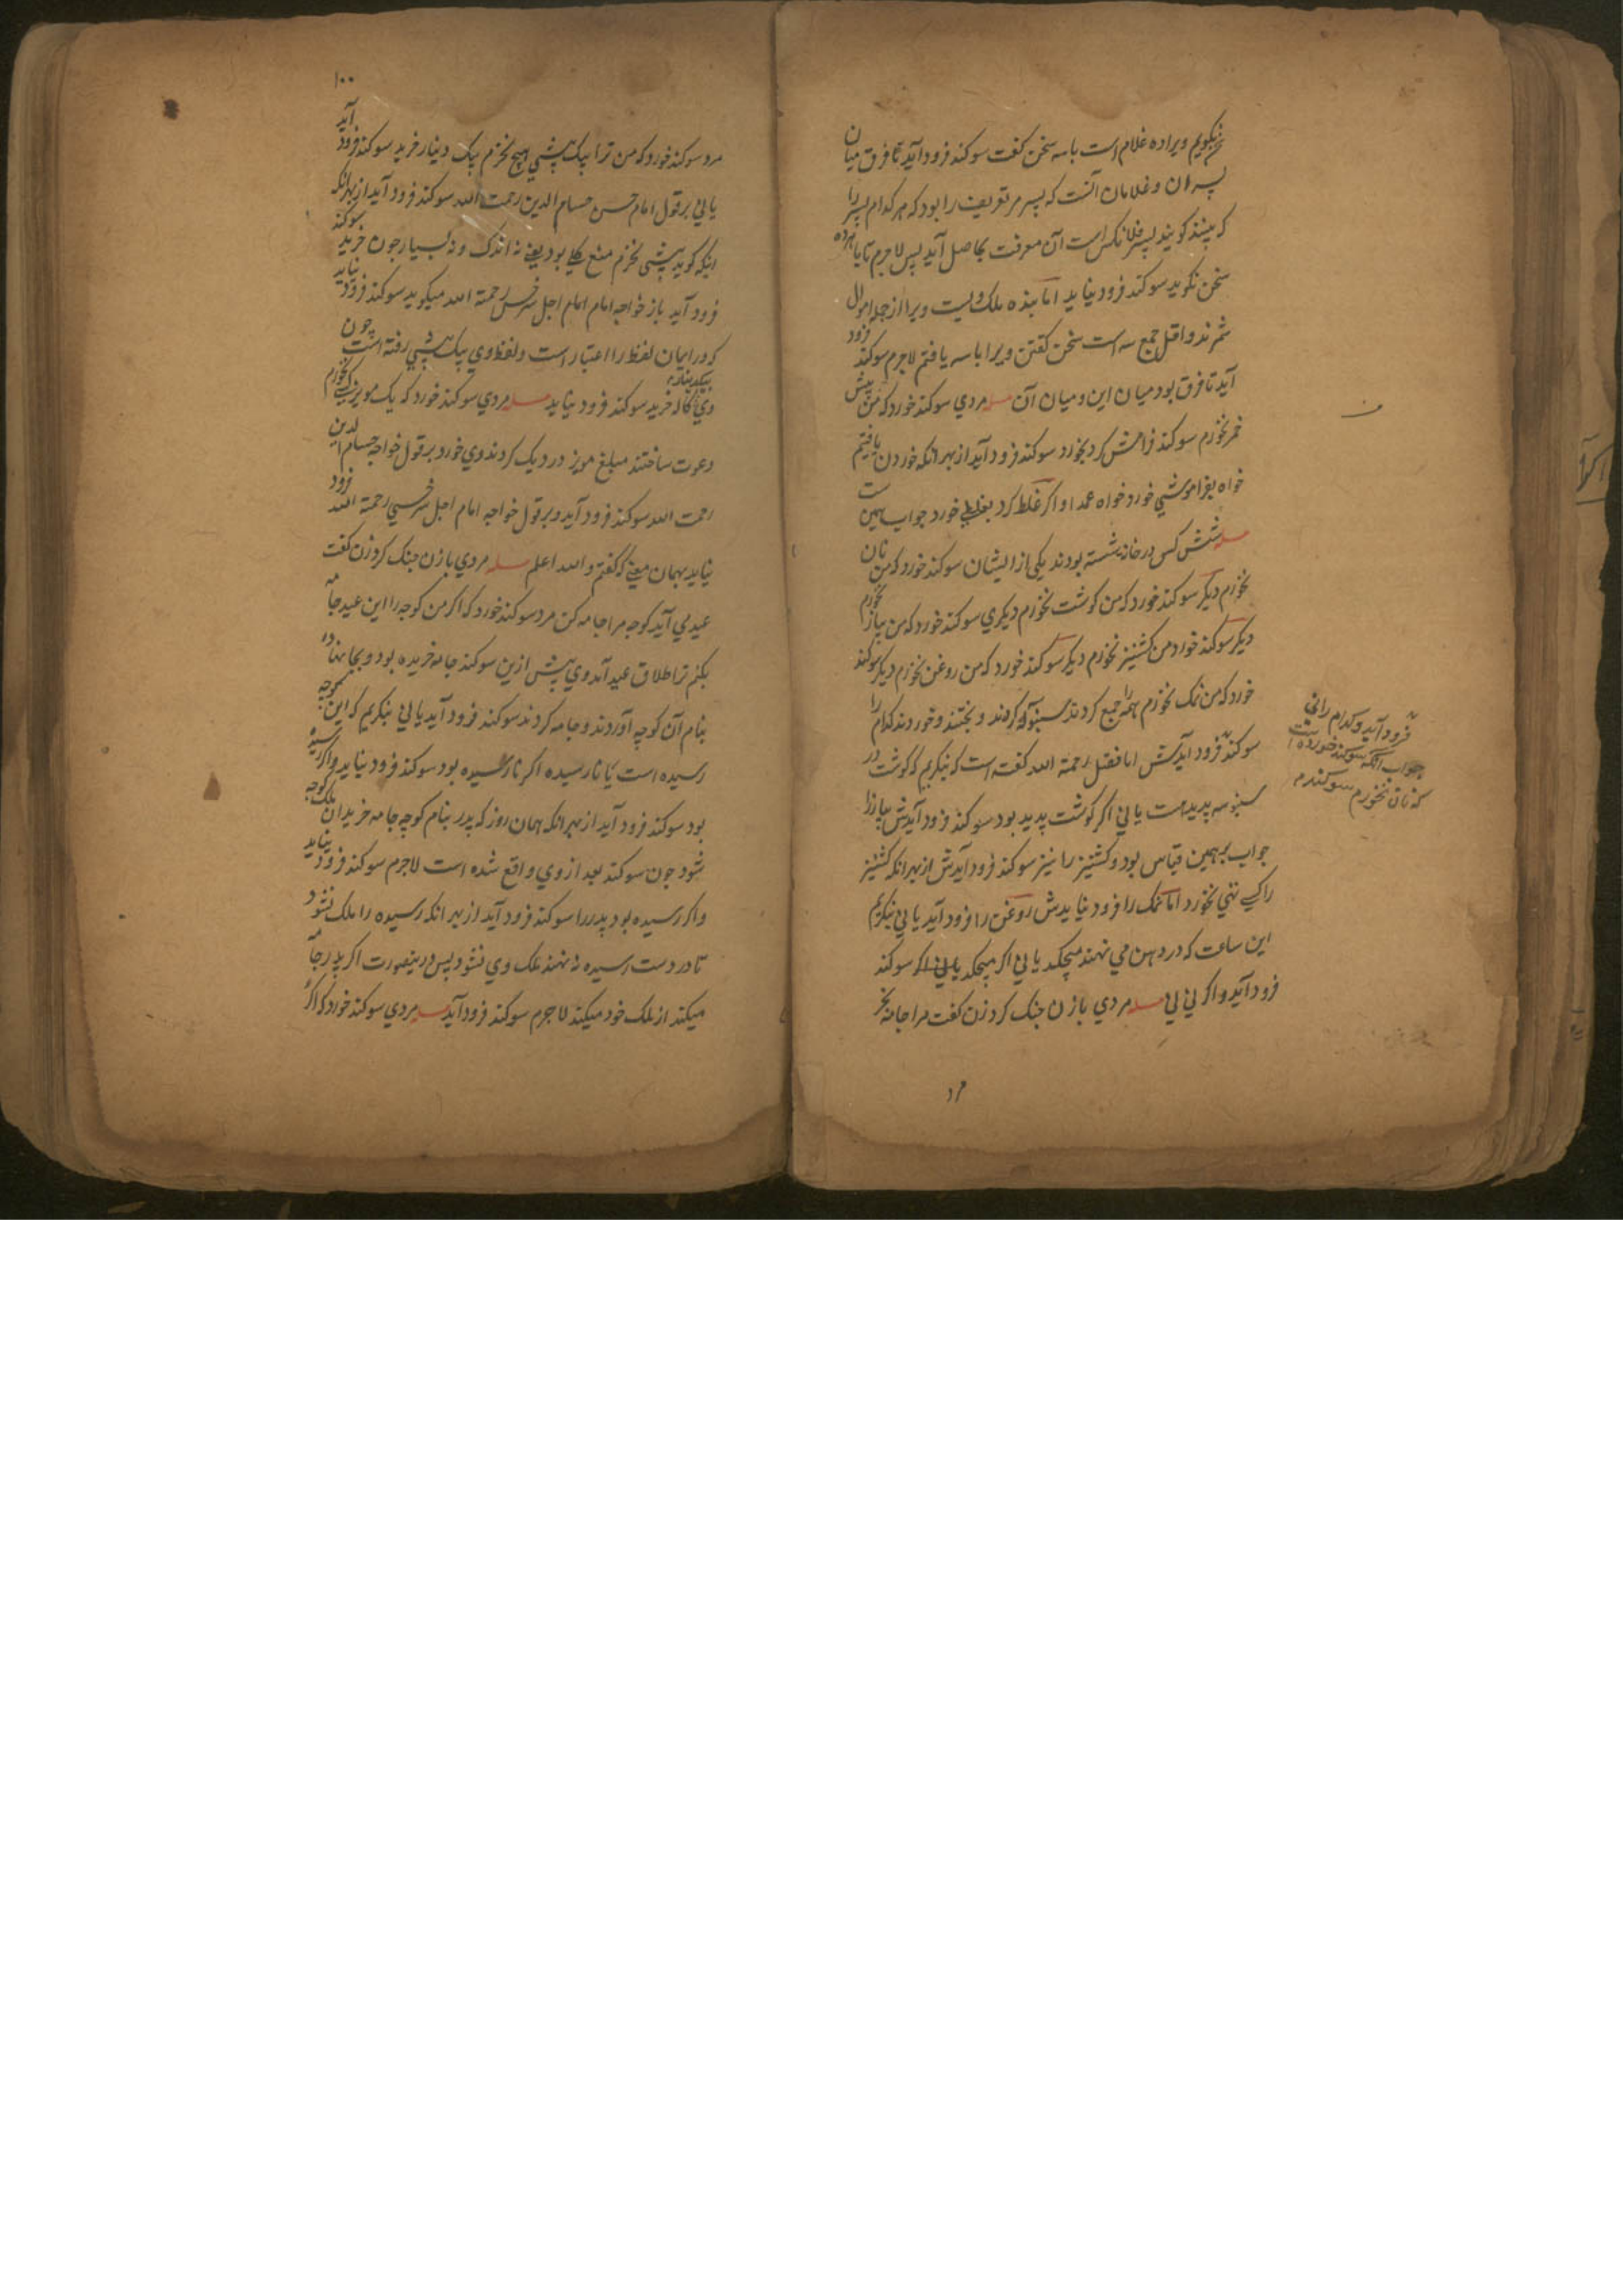 نگویم ویرا ده غلام است با سه سخن گفت سوکند فرود آید تا فرق میان
پسران و غلامان آنست که پسر مر تعریف را بود که هر کدام پسر را
که بینند کویند پسر فلانکس است آن معرفت بحاصل آید پس لاجرم تا با هر ده
سخن نکوید سوکند فرود نیاید اما بنده ملک ویست ویرا از جمله اموال
شمرند و اقل جمع سه است سخن کفتن ویرا با سه یافتم لاجرم سوکند فرود
آید تا فرق بود میان این و میان آن مسله مردي سوکند خورد که من پیش
خمر نخورم سوکند فرامش کرد بخورد سوکند فرود آید از بهر انکه خوردن یافتیم
خواه بفراموشي خورد خواه عمدا و اکر غلط کرد بغلط خورد جواب همین ست
مسله شش کس در خانه نشسته بودند یکي از ایشان سوکند خورد که من نان
نخورم دیکر سوکند خورد که من کوشت نخورم دیکري سوکند خورد که من پیاز نخورم
دیکر سوکند خورد من کشنیز نخورم دیکر سوکند خورد که من روغن نخورم دیکر سوکند
خورد که من نمک نخورم همه را جمع کردند سنبوسه کردند و پختند و خوردند کدام را
سوکند فرود آیدش اما فضل رحمة الله کفته است که بنکریم که کوشت در
سنبوسه پدید است یا ني اکر کوشت پدید بود سوکند فرود آیدش پیاز را
جواب برهمین قیاس بود و کشنیز را نیز سوکند فرود آیدش از بهر انکه کشنیز
را کسي تنها نخورد اما نمک را فرود نیایدش روغن را فرود آید یا ني بنکریم
این ساعت که در دهن مي نهند میچکد یا ني اکر میچکد سوکند
فرود آید و اکر ني ني مسله مردي با زن جنک کرد زن کفت مرا جامه بخر
مرد
فرود آید و کدام را ني
جواب انکه سوکند خورده است
که نان نخورم سوکند
۱۰۰
مرد سوکند خورد که من ترا بیک پشي هیچ نخرم بیک دینار خرید سوکند فرود آید
یا ني بر قول امام حسن حسام الدین رحمت الله سوکند فرود آید از بهر انکه
اینکه کوید پشي نخرم منع کلي بود یعني نه اندک و نه بسیار چون خرید سوکند
فرود آید باز خواجه امام امام اجل سرخسي رحمة الله میکوید سوکند فرود نیاید
که در ایمان لفظ را اعتبار است و لفظ وي بیک پشي رفته است چون
وي بیکدینار کاله خرید سوکند فرود نیاید مسله مردي سوکند خورد که یک مویز نخورم
دعوت ساختند مبلغ مویز در دیک کردند وي خورد بر قول خواجه حسام الدین
رحمت الله سوکند فرود آید و بر قول خواجه امام اجل سرخسي رحمة الله فرود
نیاید بهمان معني که کفتم و الله اعلم مسله مردي با زن جنک کرد زن کفت
عید مي آید کوچه مرا جامه کن مرد سوکند خورد که اکر من کوچه را این عید جامه
بکنم ترا طلاق عید آمد وي پیش ازین سوکند جامه خریده بود و بجا نهاده
بنام آن کوچه آوردند و جامه کردند سوکند فرود آید یا ني بنکریم که این کوچه
رسیده است یا نارسیده اکر نارسیده بود سوکند فرود نیاید و اکر رسیده
بود سوکند فرود آید از بهر انکه همان روز که پدر بنام کوچه جامه خرید ان ملک کوچه
شود چون سوکند بعد از وي واقع شده است لاجرم سوکند فرود نیاید
و اکر رسیده بود پدر را سوکند فرود آید از بهر انکه رسیده را ملک نشود
تا در دست رسیده نه نهند ملک وي نشود پس درینصورت اکر پدر جامه
میکند از ملک خود میکند لاجرم سوکند فرود آید مسله مردي سوکند خورد که اکر